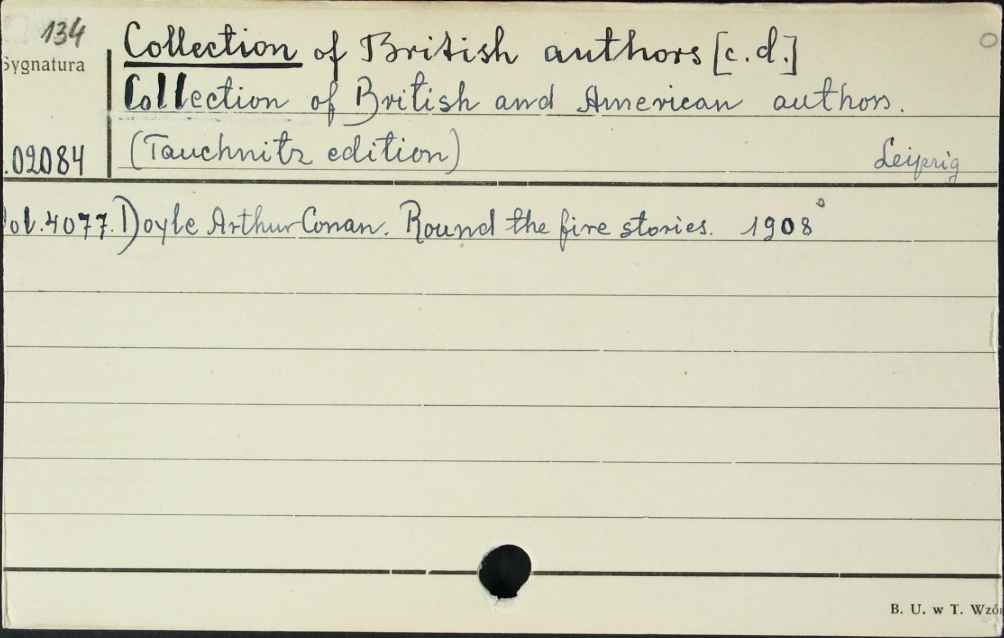 134
Sygnatura
Collection of British authors [c.d.]
Collection of British and American authors.
.02084
(Tauchnitz edition)
Leipzig
Vol. 4077. Doyle Arthur Conan. Round the fire stories. 1908°
B. U. w T. Wzór